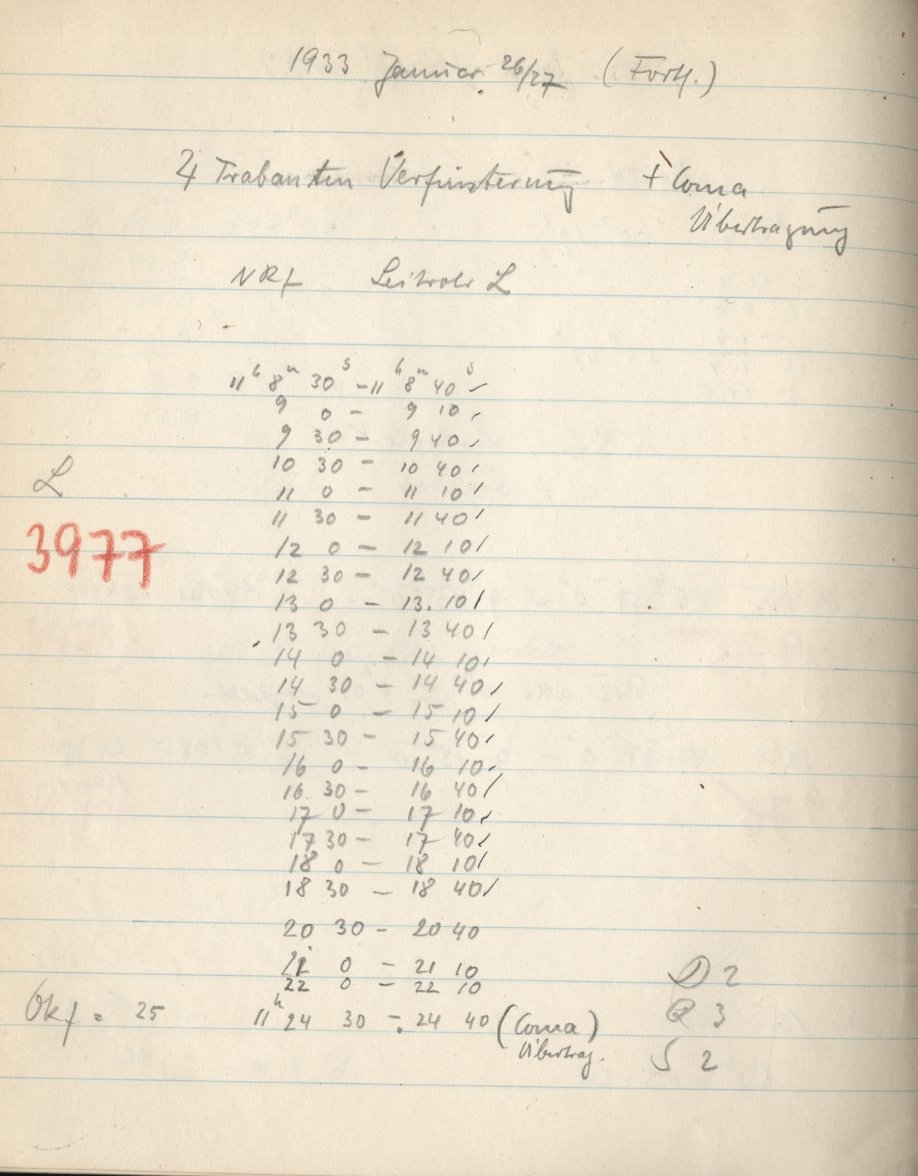 1933 Januar 26/27 (Forts.)
♃ Trabanten Verfinsterung + Coma
Übertragung
NRf Leitrohr L
11h 8m 30s - 11h 8m 40s ✓
9 0 - 9 10 ✓
9 30 - 9 40 ✓
10 30 - 10 40 ✓
11 0 - 11 10 ✓
L
11 30 - 11 40 ✓
3977
12 0 - 12 10 ✓
12 30 - 12 40 ✓
13 0 - 13. 10 ✓
13 30 - 13 40 ✓
14 0 - 14 10 ✓
14 30 - 14 40 ✓
15 0 - 15 10 ✓
15 30 - 15 40 ✓
16 0 - 16 10 ✓
16 30 - 16 40 ✓
17 0 - 17 10 ✓
17 30 - 17 40 ✓
18 0 - 18 10 ✓
18 30 - 18 40 ✓
20 30 - 20 40
21 0 - 21 10
D 2
22 0 - 22 10
Okf = 25 11h 24 30 - 24 40 (Coma) R 3
Übertrag. S 2